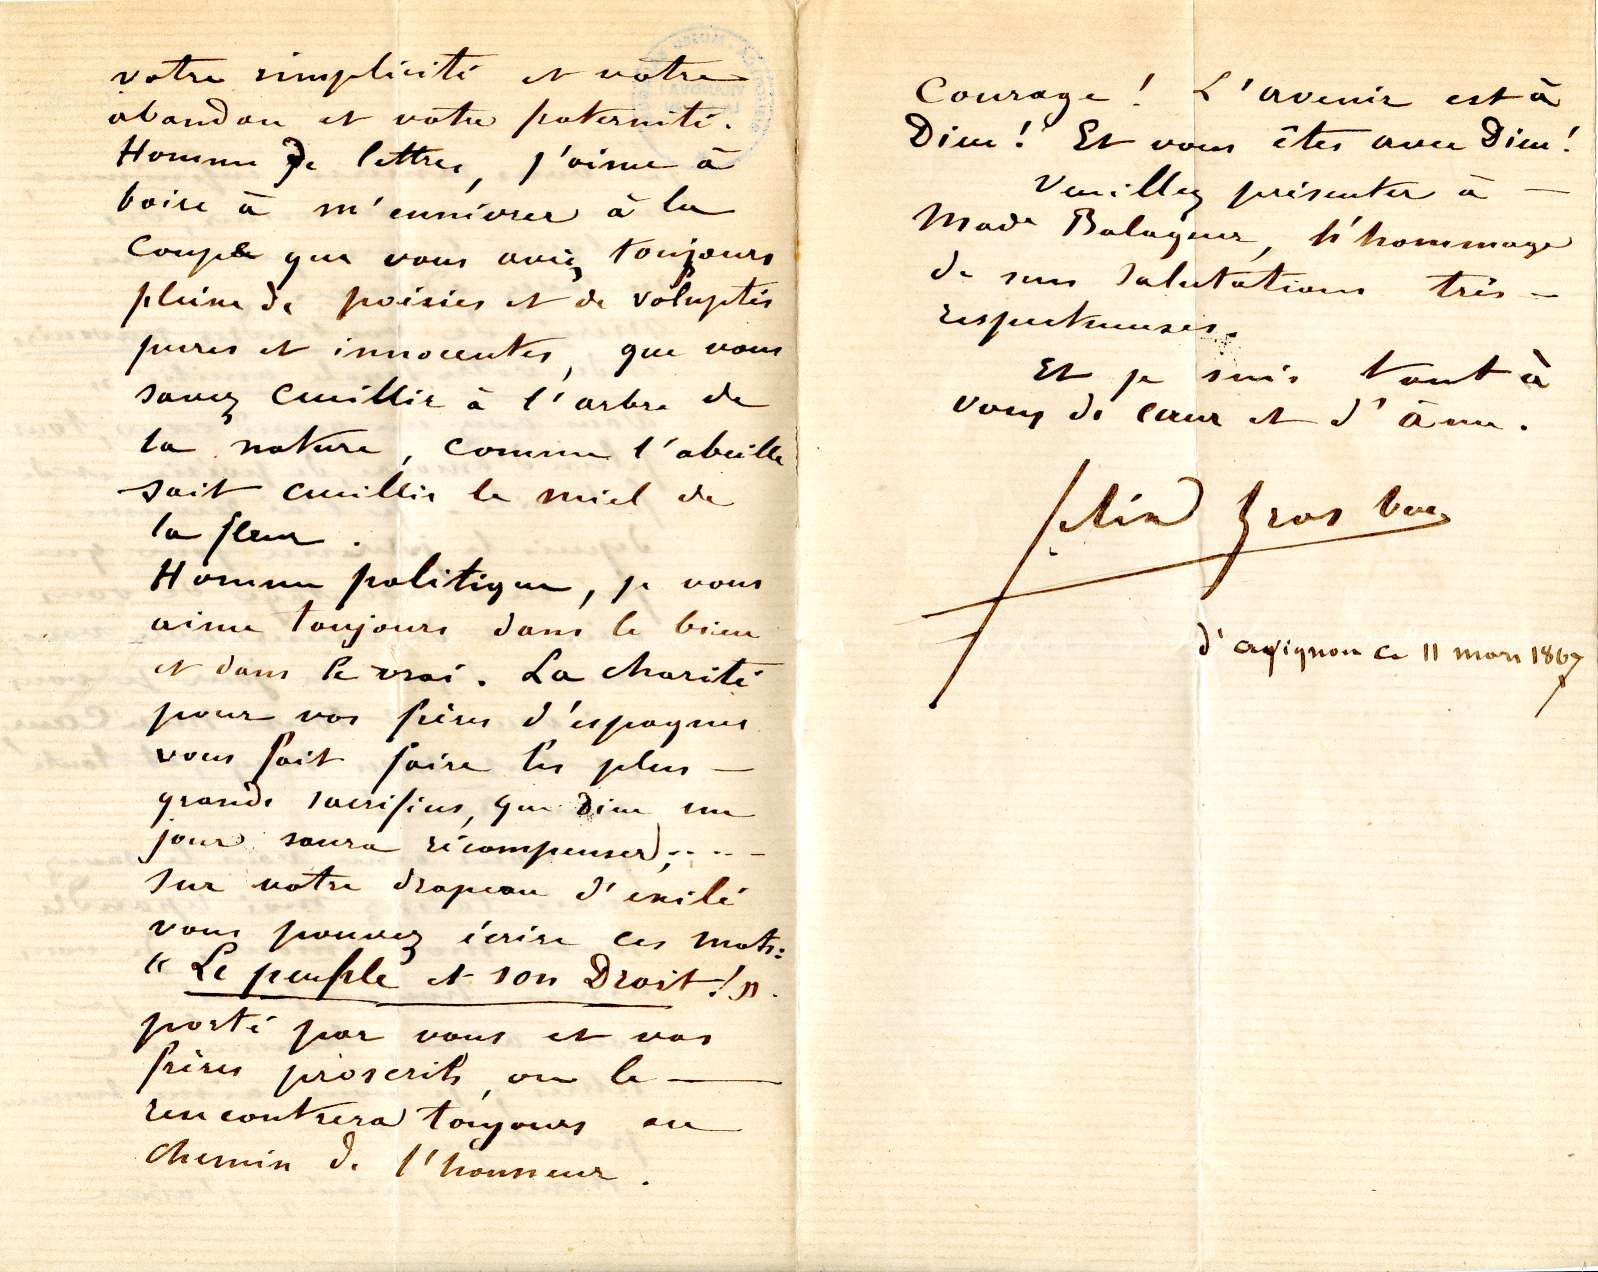 votre simplicité et votre
abandon et votre paternité.
Homme de lettres, j'aime à
boire à m'ennivrer à la
coupe que vous aviez toujours
pleine de poésies et de voluptés
pures et innocentes, que vous
savez cueillir à l'arbre de
la nature, comme l'abeille
sait cueillir le miel de
la fleur.
Homme politique, je vous
aime toujours dans le bien
et dans le vrai. La charité
pour vos frères d'espagnes
vous fait faire les plus —
grands sacrifices, que Dieu un
jour saura récompenser; . . - -
sur votre drapeau d'exilé
vous pouvez écrire ces mots:
"Le peuple et son Droit!".
porté par vous et vos
frères proscrits, on le —
rencontrera toujours au
chemin de l'honneur.
Courage! L'avenir est à
Dieu! Et vous êtes avec Dieu!
Veuillez présenter à —
Made Balaguer, l'hommage
de mes salutations très —
respectueuses.
Et je suis tout à
vous de cœur et d'âme.
Félix Gras
d'avignon ce 11 mars 1867